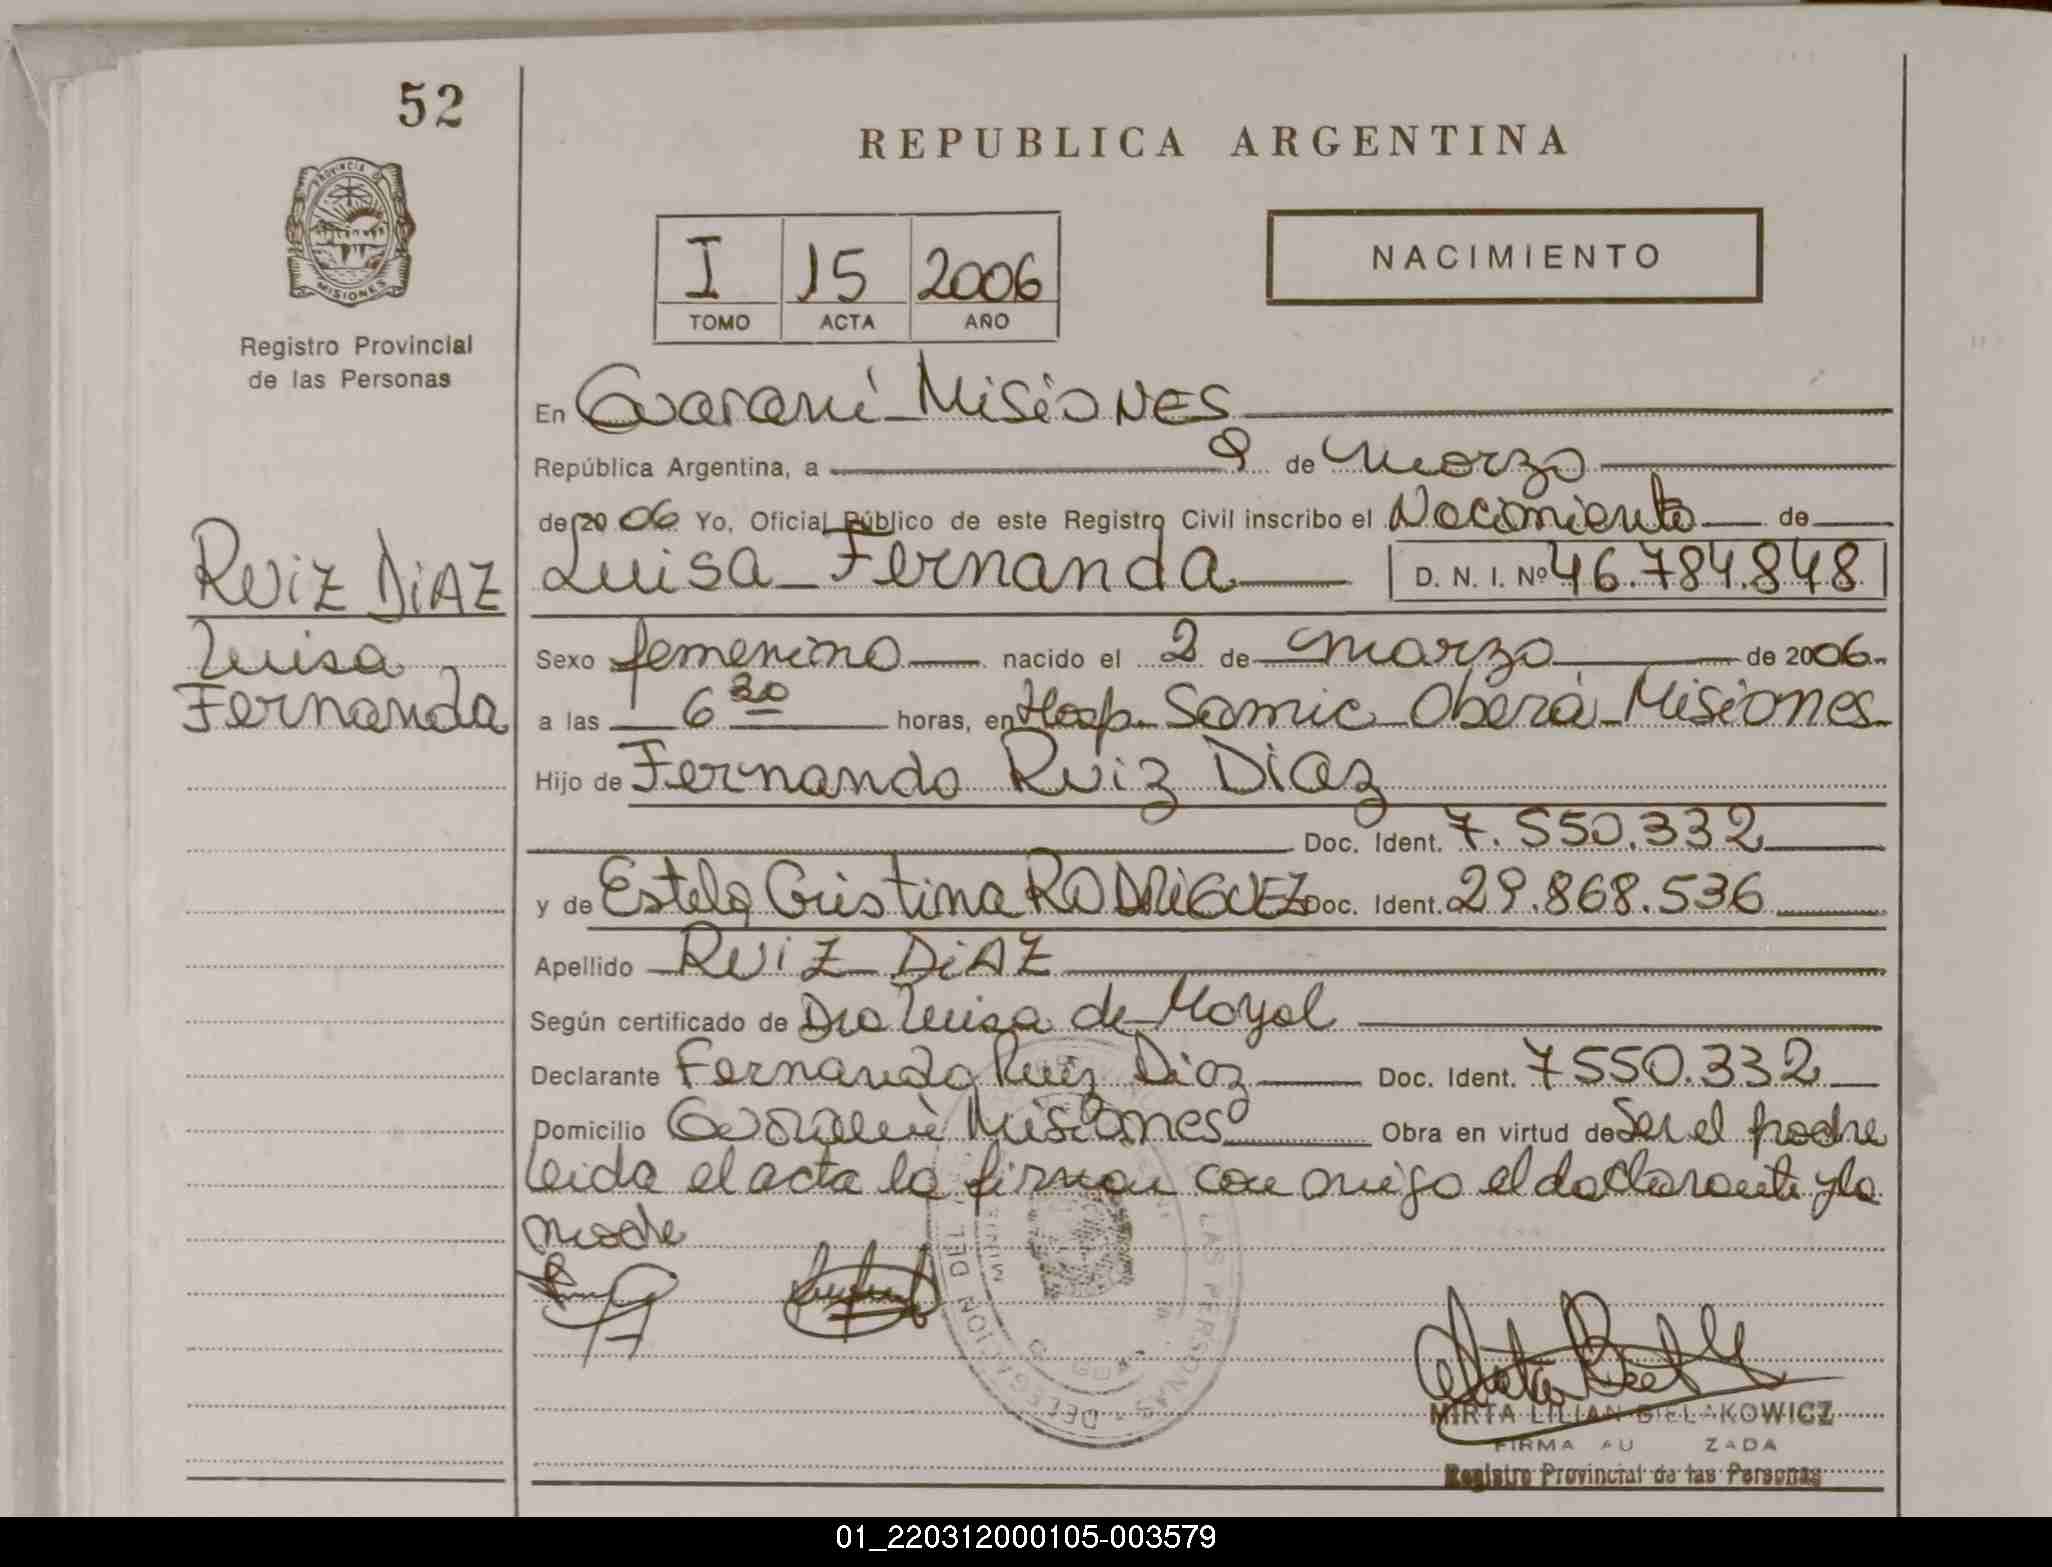 52
REPUBLICA ARGENTINA
PROVINCIA D
MISIONES
Registro Provincial
de las Personas
I 15 2006
TOMO ACTA AÑO
NACIMIENTO
En Guaraní Misiones
República Argentina, a 9 de Marzo
de 2006 Yo, Oficial Público de este Registro Civil inscribo el Nacimiento de
Luisa Fernanda D. N. I. Nº 46.784.848
RUIZ DIAZ
Luisa
Fernanda
Sexo femenino nacido el 2 de marzo de 2006
a las 6 30 horas, en Hosp. Samic Oberá Misiones
Hijo de Fernando Ruiz Diaz
Doc. Ident. 7.550.332
y de Estela Cristina RODRIGUEZ Doc. Ident. 29.868.536
Apellido RUIZ DIAZ
Según certificado de Dra Luisa de Moyal
Declarante Fernando Ruiz Diaz Doc. Ident. 7550.332
Domicilio Guaraní Misiones Obra en virtud de Ser el padre
leida el acta la firman con migo el declarante y la
madre
DELEGACION DEL LAS PERSONAS
MIRTA LILIAN BIELAKOWICZ
FIRMA AU ZADA
Registro Provincial de las Personas
01_220312000105-003579